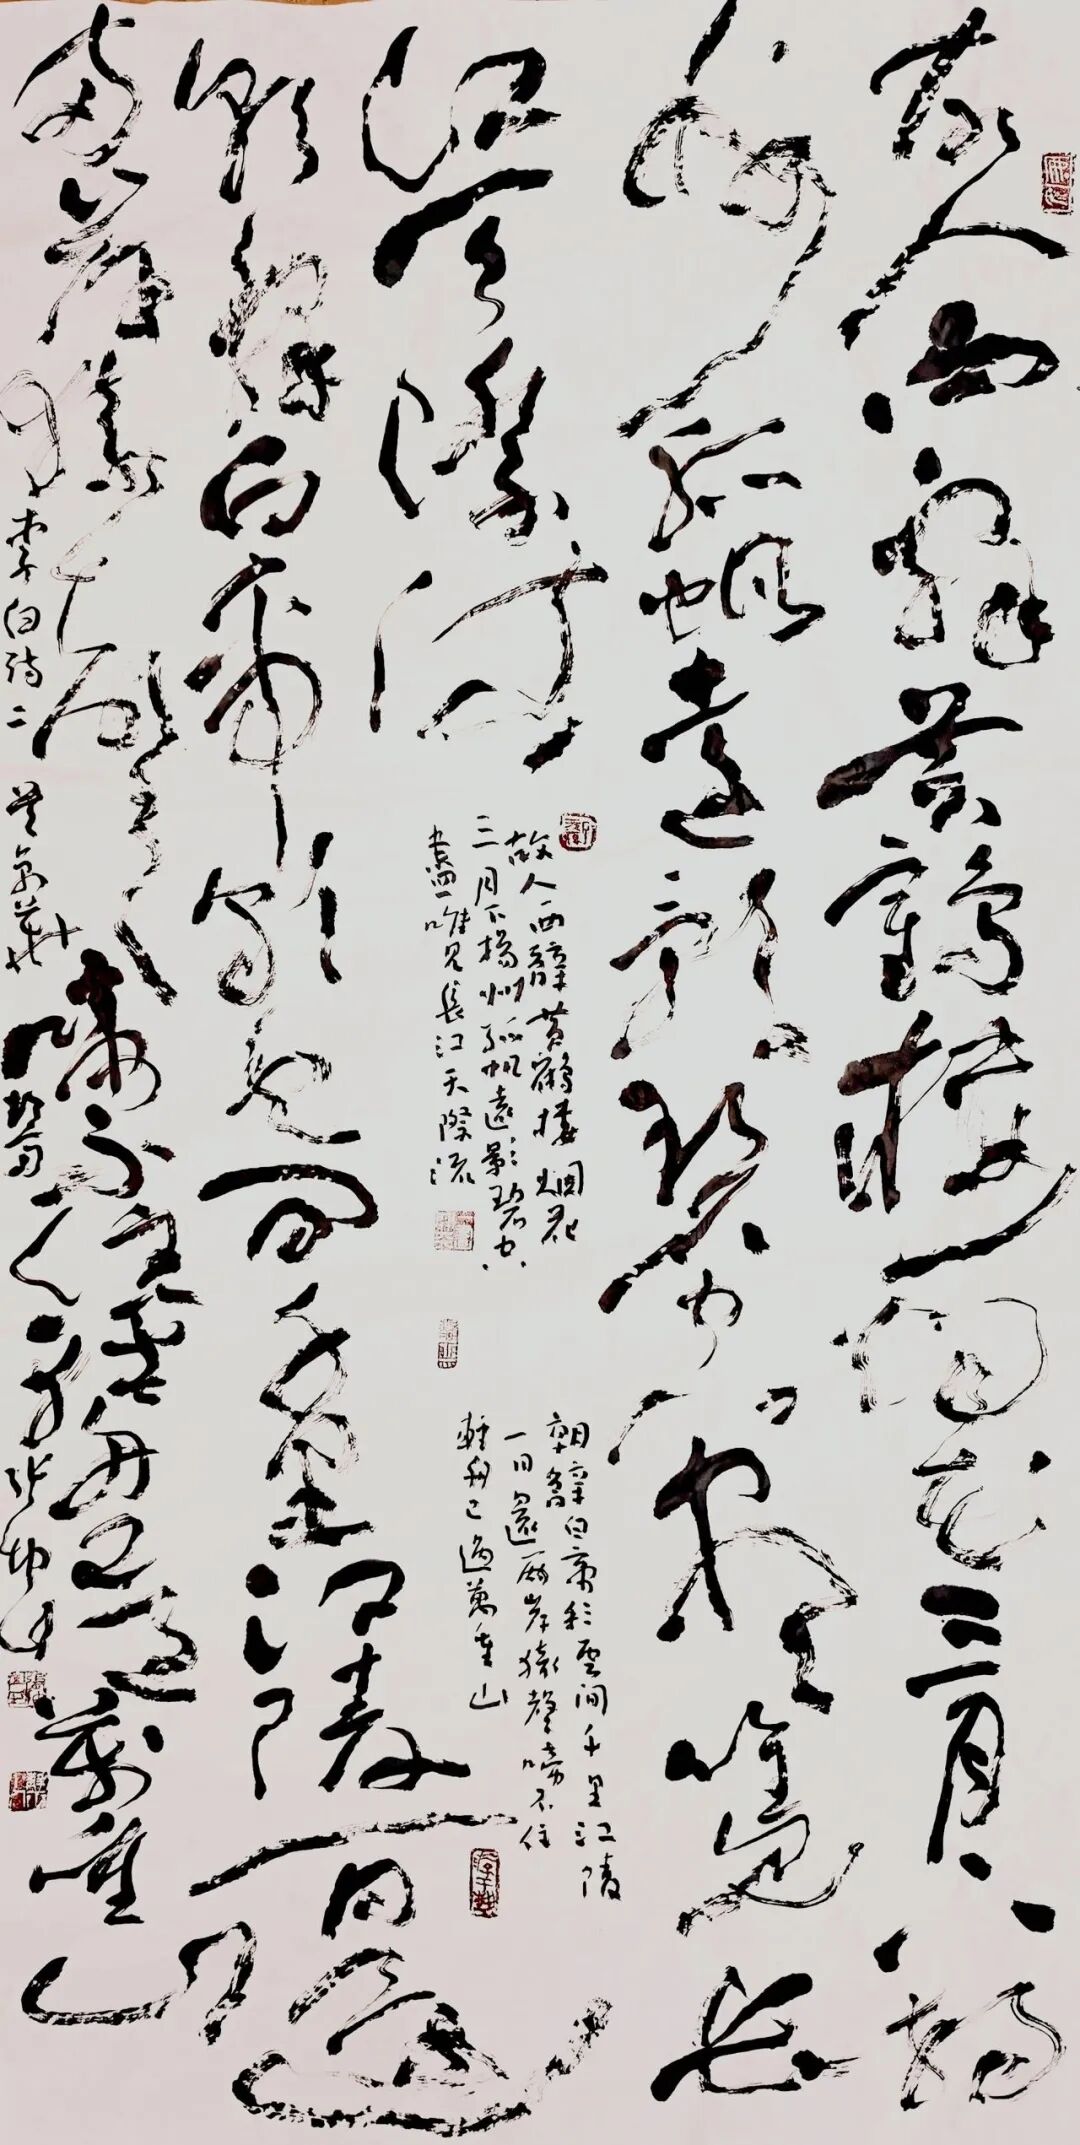 故人西辭黄鶴樓烟花三月下揚
州孤帆遠影碧空盡唯見長
江天際流
朝辭白帝彩雲間千里江陵一日還
兩岸猿聲啼不住輕舟已過萬重山
李白詩二
故人西辭黄鶴樓烟花
三月下揚州孤帆遠影碧空
盡唯見長江天際流
朝辭白帝彩雲間千里江陵
一日還兩岸猿聲啼不住
輕舟已過萬重山